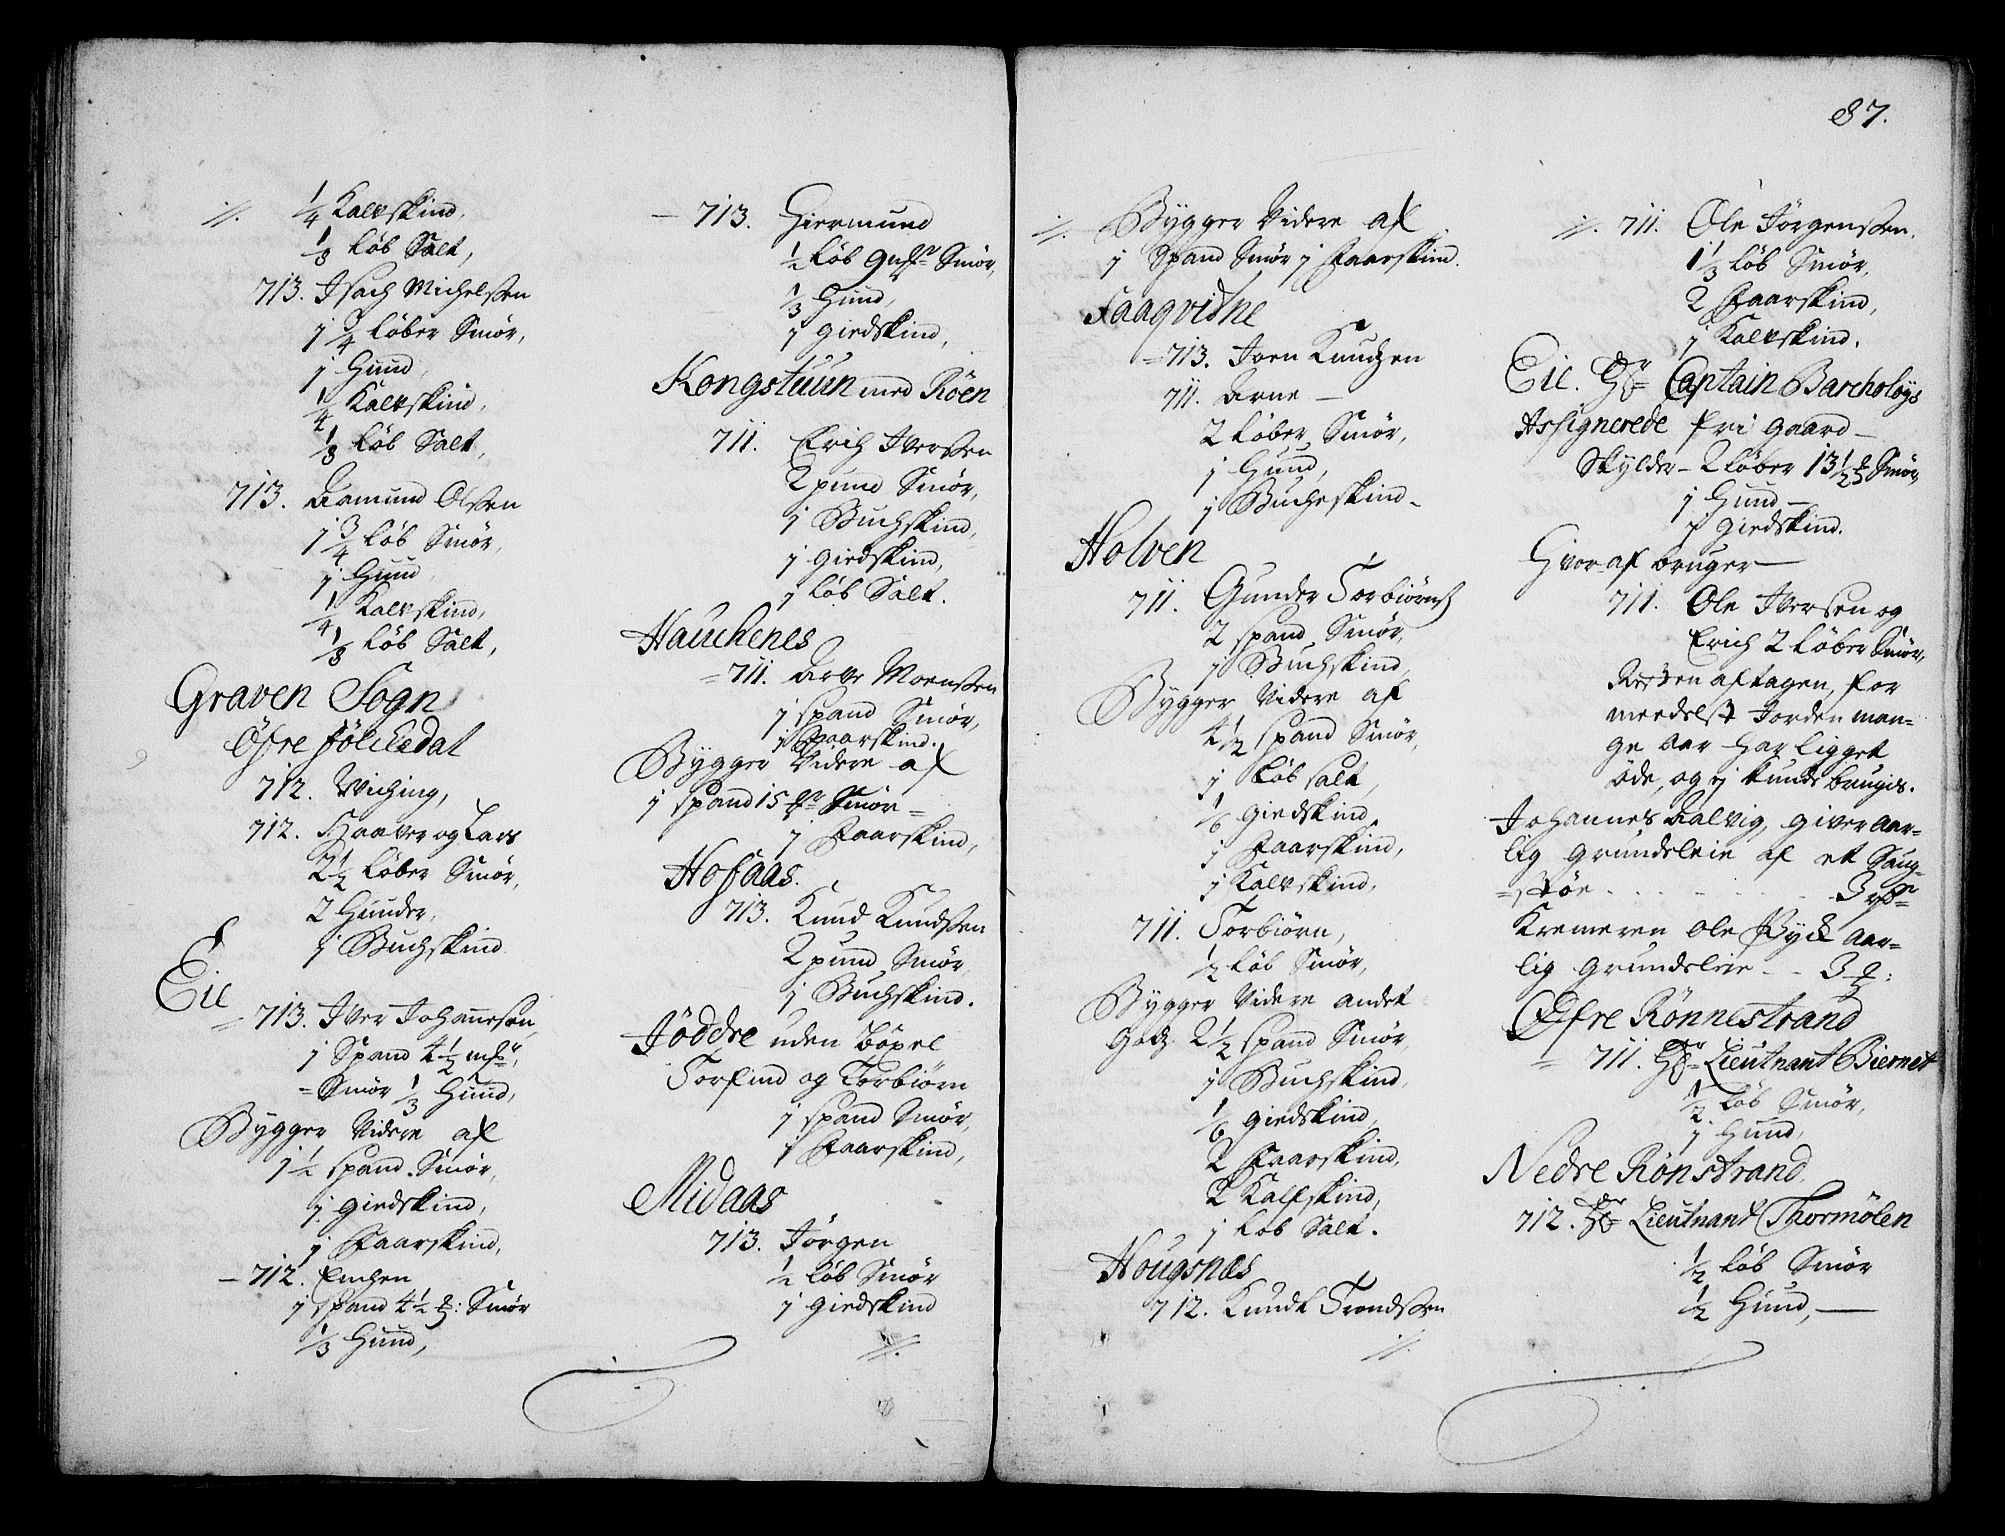 ./. ¼ Kalvskind,
⅛ Løb Salt,
713. Isach Michelsen
1 ¾ Løber Smør,
1 Hund,
¼ Kalvskind,
⅛ Løb Salt,
713. Aamund Olsen
1 ¾ Løb Smør,
1 Hund,
¼ Kalvskind,
⅛ Løb Salt,
Graven Sogn
Öfre Jölckedal
712. Wiching,
712. Haaver og Lars
2½ Løber Smør,
2 Hunder,
1 Buchskind
Eie
713. Iver Johannesen
1 Spand 4½
Smør ⅓ Hund,
Bygger Videre af
1½ Spand Smør,
1 Giedskind,
1 Faarskind,
712. Enchen
1 Spand 4½ : Smør
⅓ Hund,
713. Giermund
½ Løb Smør,
⅓ Hund,
1 Giedskind,
Kongstuun med Röen
711. Erich Iversen
2 pund Smør,
1 Buchskind,
1 Giedskind,
1 Løb Salt.
Hauchenes
711. Arve Monsen
1 Spand Smør,
1 Faarskind.
Bygger Videre af
1 Spand 15 Smør
1 Faarskind,
Hofaas.
713. Knud Knudsen
2 pund Smør,
1 Buchskind.
Jöddre uden bøxel
Torfind og Torbiørn
1 Spand Smør,
1 Faarskind,
Midaas
713. Jørgen
½ Løb Smør
1 Giedskind
./.
87.
./. Bygger Videre af
1 Spand Smør 1 Faarskind.
Faaqvidne
713. Joen Knudzen
711. Arne
2 Løber Smør,
1 Hund,
1 Bucheskind
Holven
711. Gunder Torbiørns
2 Spand Smør,
1 Buchskind
Bygger Videre af
4½ Spand Smør,
1 Løb Salt,
⅙ Giedskind,
1 Faarskind,
1 Kalvskind,
711. Torbiørn,
½ Løb Smør,
Bygger Videre andet
Gotz 2½ Spand Smør,
1 Buchskind,
⅙ Giedskind,
2 Faarskind,
2 Kalfskind,
1 Løb Salt.
Hougsnæs
712. Knudt Trondsen
./.
./. 711. Ole Jörgensen.
1⅓ Løb Smør,
2 Faarskind,
1 Kalvskind.
Eie. Hr Captain Bartholoÿs
Assignerede fri Gaard
Skylder 2 Løber 13½ Smør,
1 Hund
1 Giedskind.
Hvor af bruger
711. Ole Iversen og
Erich 2 Løber Smør,
Resten aftagen, for
meedelst Jorden man-
ge Aar har ligget
øde, og ej kunde bruges.
Johannes Aalvig, giver aar-
lig Grundsleie af et Saug-
støe . . . . 3
Kremeren Ole Pyck aar-
lig Grundsleie - - 3 :
Öfre Rönnestrand
711. Hr Lieutnant Biernet
½ Løb Smør,
1 Hund,
Nedre Rönstrand.
712. Hr Lieutnant Thormölen
½ Løb Smør
½ Hund,